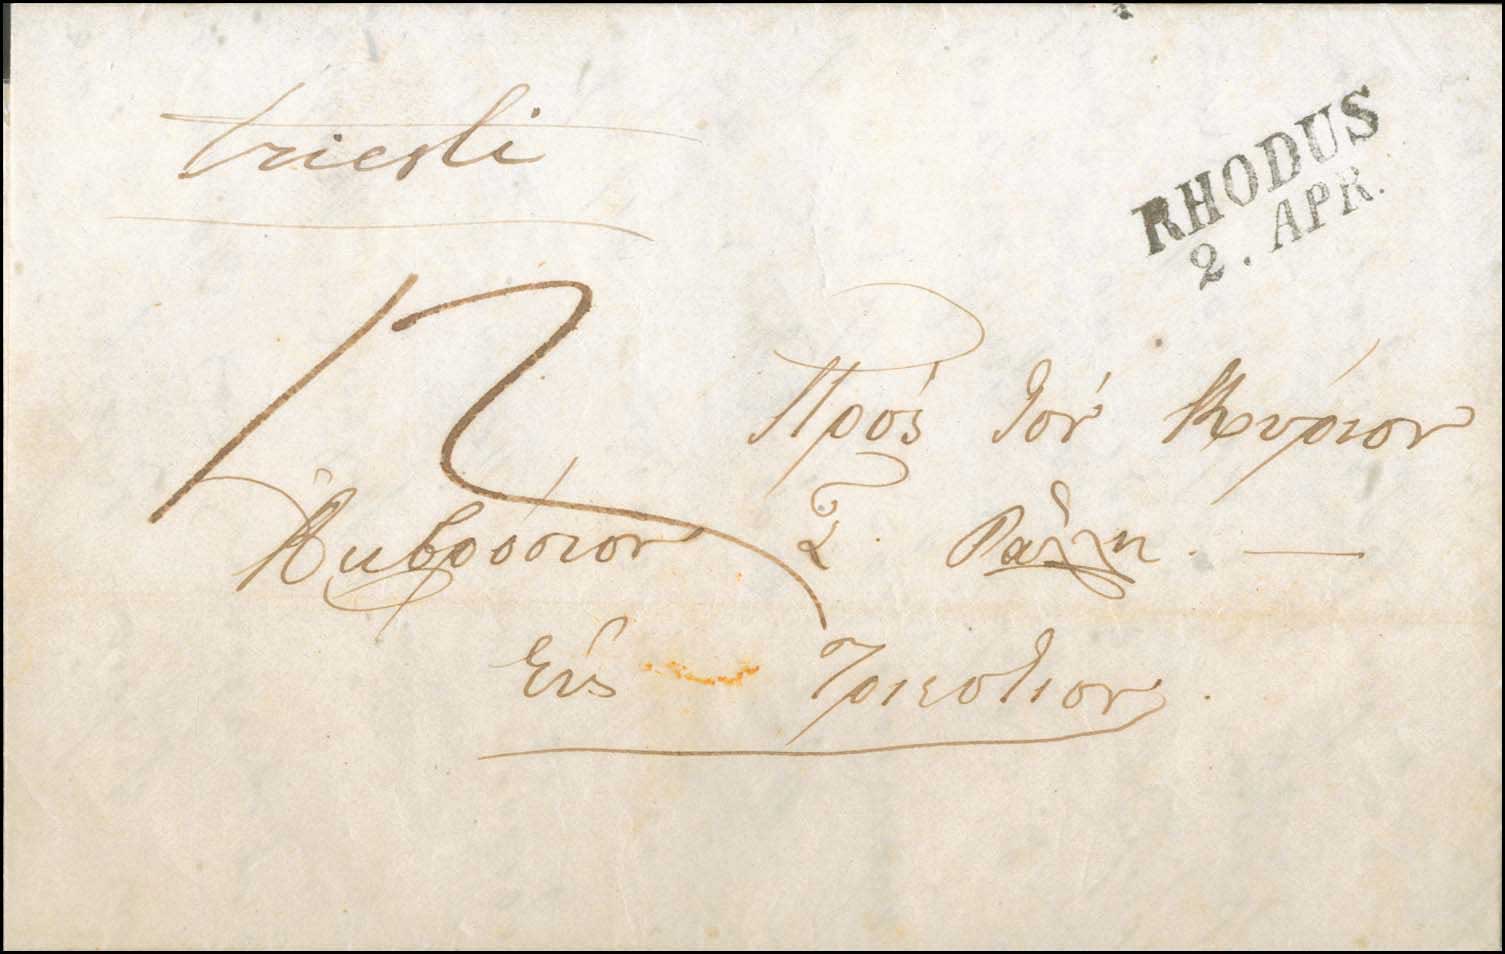 triesti
RHODUS
2. APR.
12
Πρός τόν Κύριον
Ἀμβρόσιον Σ. Ράλλη. —
Εἰς Τριέστιον.